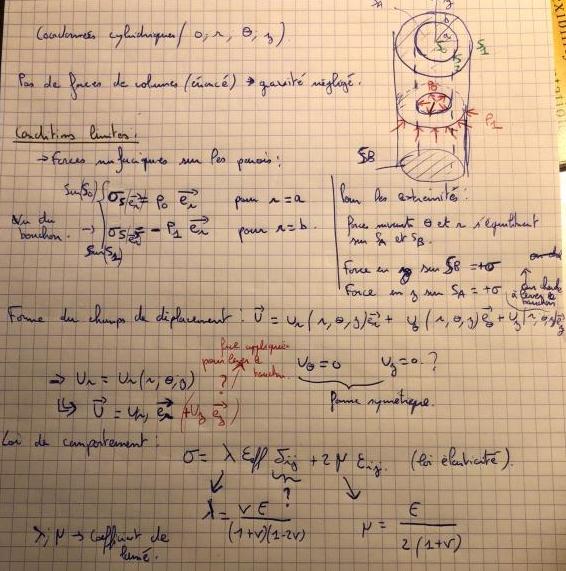 Coordonnées cylindriques (0, r, θ, z).
Pas de forces de volumes (énoncé) → gravité négligé.
Conditions limites:
→ Forces surfaciques sur les parois:
Sur(S0) σS/er = P0 er pour r = a
Vu du bouchon. → σS/er = - P1 er pour r = b.
Sur(S1)
Pour les extrémités:
force suivant θ et r s'équilibrent
sur SA et SB.
Force en z sur SB = +σ
Force en z sur SA = +σ
à lever le bouchon
A
z
b
a
S0
S1
P0
P1
SB
Forme du champs de déplacement: U = Ur(r,θ,z)er + Uθ(r,θ,z)eθ + Uz(r,θ,z)ez
force appliquée
pour lever le bouchon.
?
Uθ = 0 Uz = 0. ?
→ Ur = Ur(r,θ,z)
forme symétrique.
↳ U = Ur er (+Uz ez)
Loi de comportement:
σ = λ Eℓℓ δij + 2μ Eij. (loi élasticité).
?
λ = νE / (1+ν)(1-2ν)
μ = E / 2(1+ν)
λ, μ → Coefficient de
lamé.